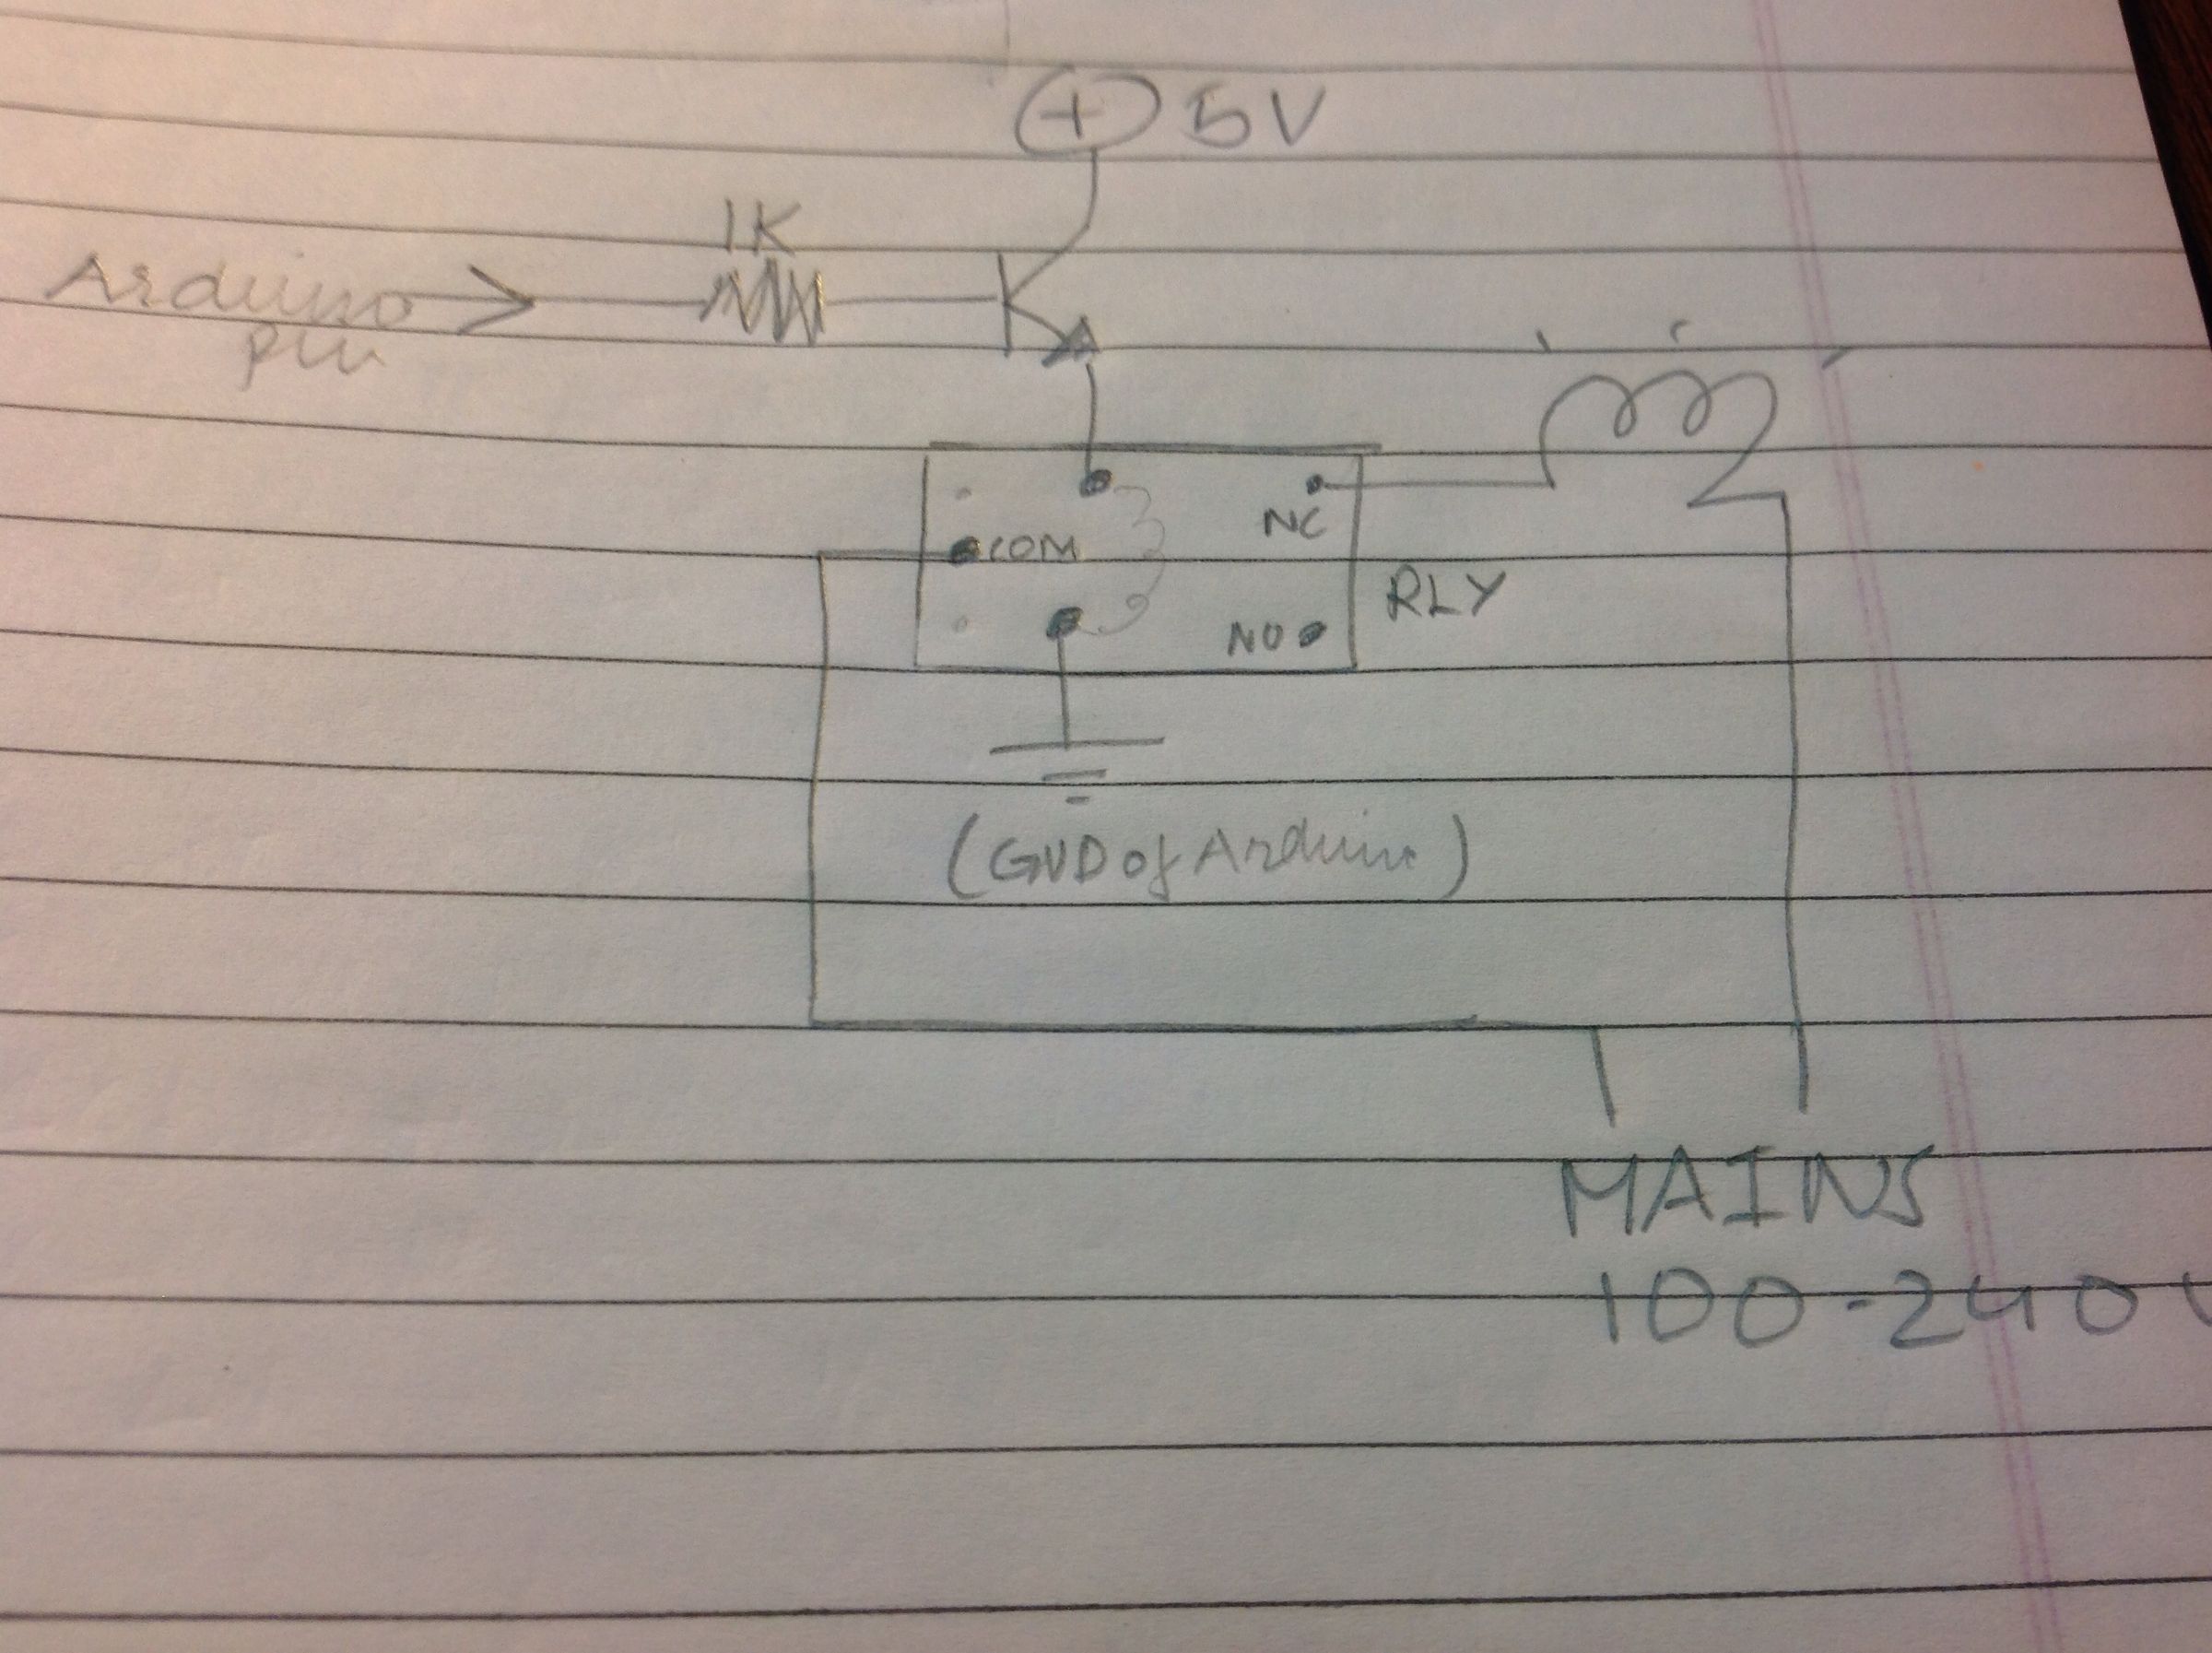 + 5V
1K
Arduino
pin
COM
NC
RLY
NO
(GND of Arduino)
MAINS
100-240V